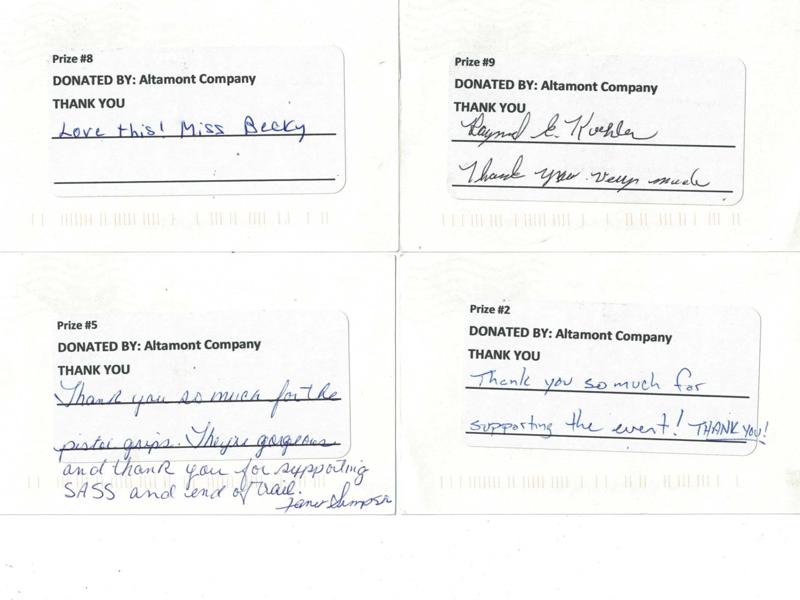 Prize #8
DONATED BY: Altamont Company
THANK YOU
Love this! Miss Becky
Prize #9
DONATED BY: Altamont Company
THANK YOU
E. Koehler
Thank you very much
Prize #5
DONATED BY: Altamont Company
THANK YOU
Thank you so much for the
pistol grips. They're gorgeous
and thank you for supporting
SASS and end of trail.
Prize #2
DONATED BY: Altamont Company
THANK YOU
Thank you so much for
supporting the event! THANK YOU!